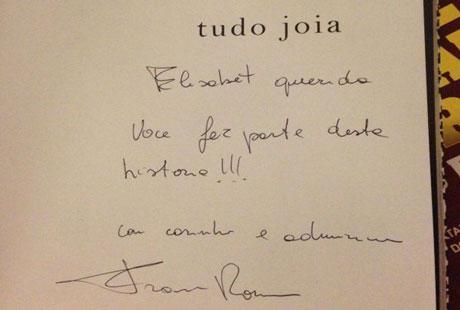 tudo joia
Elisabet querida
Voce fez parte desta
historia!!!
com carinho e admiracao